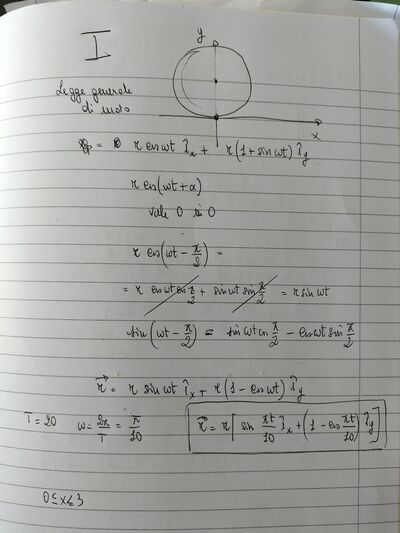 I
y
Legge generale
di moto
x
= r cos ωt î_x + r(1+sin ωt) î_y
r cos(ωt+α)
vale 0 in 0
r cos(ωt - π/2) =
= r cos ωt cos π/2 + sin ωt sin π/2 = r sin ωt
sin(ωt - π/2) = sin ωt cos π/2 - cos ωt sin π/2
r⃗ = r sin ωt î_x + r(1 - cos ωt) î_y
T = 20 ω = 2π/T = π/10 r⃗ = r[sin πt/10 î_x + (1 - cos πt/10) î_y]
0 ≤ x ≤ 3